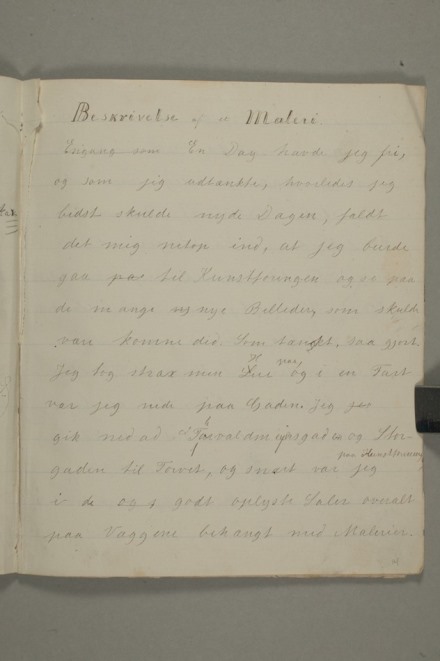 Beskrivelse af et Maleri.
Engang som En Dag havde jeg fri,
og som jeg udtænkte, hvorledes jeg
bedst skulde nyde Dagen, faldt
det mig netop ind, at jeg burde
gaa paa til Kunstforningen og se paa
de mange ny nye Billeder, som skulde
være komne did. Som tænkt, saa gjort.
Jeg tog strax min og i en Fart
var jeg nede paa Gaden. Jeg
gik ned ad og Stor-
gaden til Torvet, og snart var jeg
paa Kunstforening
i de og godt oplyste Saler overalt
paa Væggene behængt med Malerier.